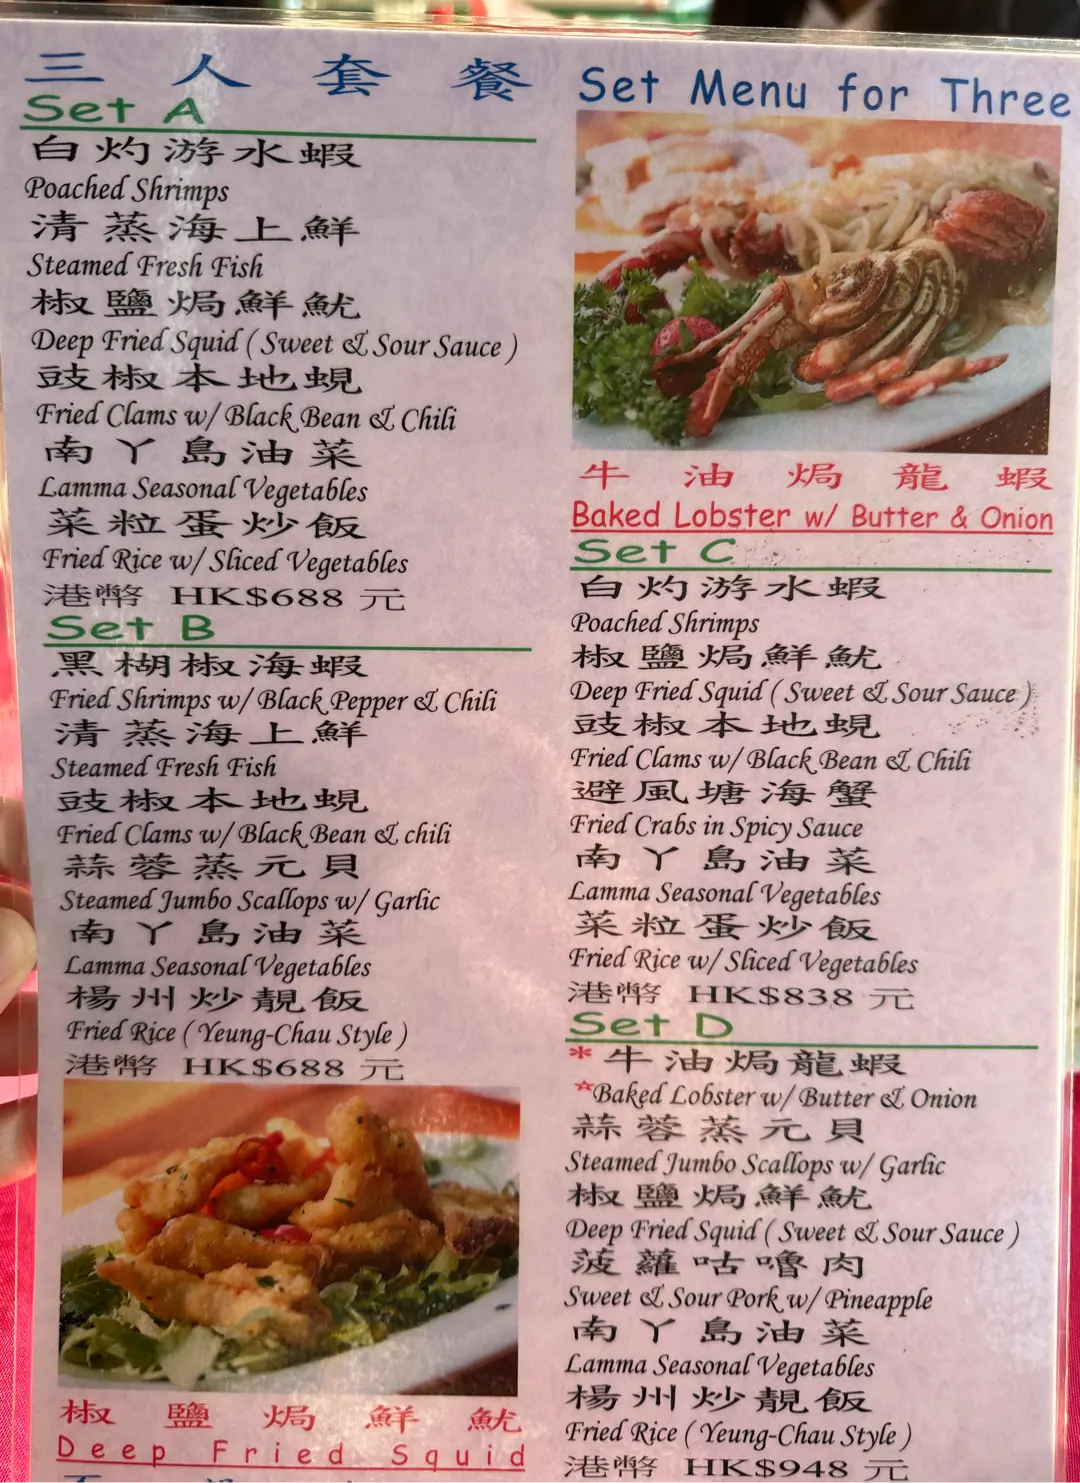 三人套餐
Set Menu for Three
Set A
白灼游水蝦
Poached Shrimps
清蒸海上鮮
Steamed Fresh Fish
椒鹽焗鮮魷
Deep Fried Squid ( Sweet & Sour Sauce )
豉椒本地蜆
Fried Clams w/ Black Bean & Chili
南丫島油菜
Lamma Seasonal Vegetables
菜粒蛋炒飯
Fried Rice w/ Sliced Vegetables
港幣 HK$688 元
Set B
黑椒海蝦
Fried Shrimps w/ Black Pepper & Chili
清蒸海上鮮
Steamed Fresh Fish
豉椒本地蜆
Fried Clams w/ Black Bean & chili
蒜蓉蒸元貝
Steamed Jumbo Scallops w/ Garlic
南丫島油菜
Lamma Seasonal Vegetables
楊州炒靚飯
Fried Rice ( Yeung-Chau Style )
港幣 HK$688 元
椒鹽焗鮮魷
Deep Fried Squid
牛油焗龍蝦
Baked Lobster w/ Butter & Onion
Set C
白灼游水蝦
Poached Shrimps
椒鹽焗鮮魷
Deep Fried Squid ( Sweet & Sour Sauce )
豉椒本地蜆
Fried Clams w/ Black Bean & Chili
避風塘海蟹
Fried Crabs in Spicy Sauce
南丫島油菜
Lamma Seasonal Vegetables
菜粒蛋炒飯
Fried Rice w/ Sliced Vegetables
港幣 HK$838 元
Set D
* 牛油焗龍蝦
*Baked Lobster w/ Butter & Onion
蒜蓉蒸元貝
Steamed Jumbo Scallops w/ Garlic
椒鹽焗鮮魷
Deep Fried Squid ( Sweet & Sour Sauce )
菠蘿咕嚕肉
Sweet & Sour Pork w/ Pineapple
南丫島油菜
Lamma Seasonal Vegetables
楊州炒靚飯
Fried Rice ( Yeung-Chau Style )
港幣 HK$948 元